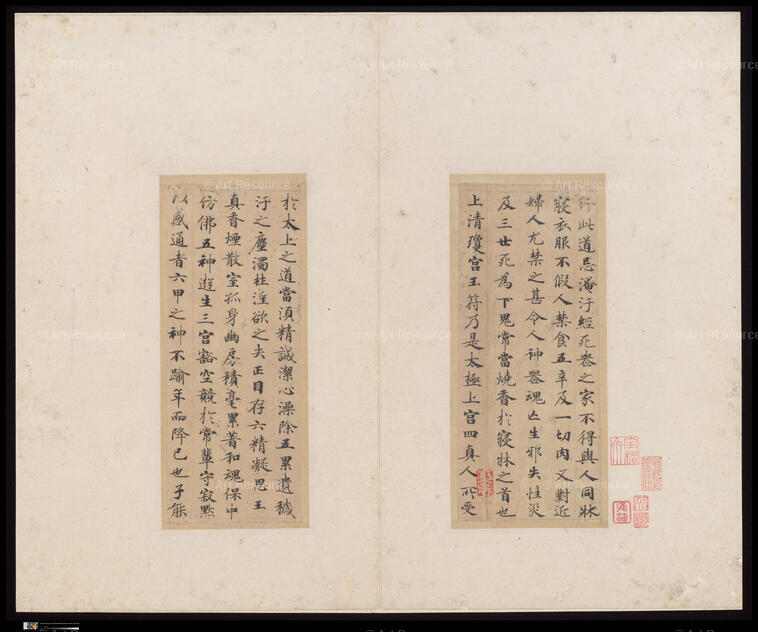 行此道忌淹汙經死喪之家不得與人同牀
寑衣服不假人禁食五辛及一切肉又對近
婦人尤禁之甚令人神喪魂亡生邪失性災
及三世死為下鬼常當燒香於寑牀之首也
上清瓊宫玉符乃是太極上宫四真人所受
於太上之道當湏精誠潔心澡除五累遺穢
汙之塵濁杜淫欲之失正目存六精凝思玉
真香煙散室孤身幽房積毫累著和魂保中
仿佛五神遊生三宫豁空競於常輩守寂默
以感通者六甲之神不踰年而降已也子能
© Art Resource